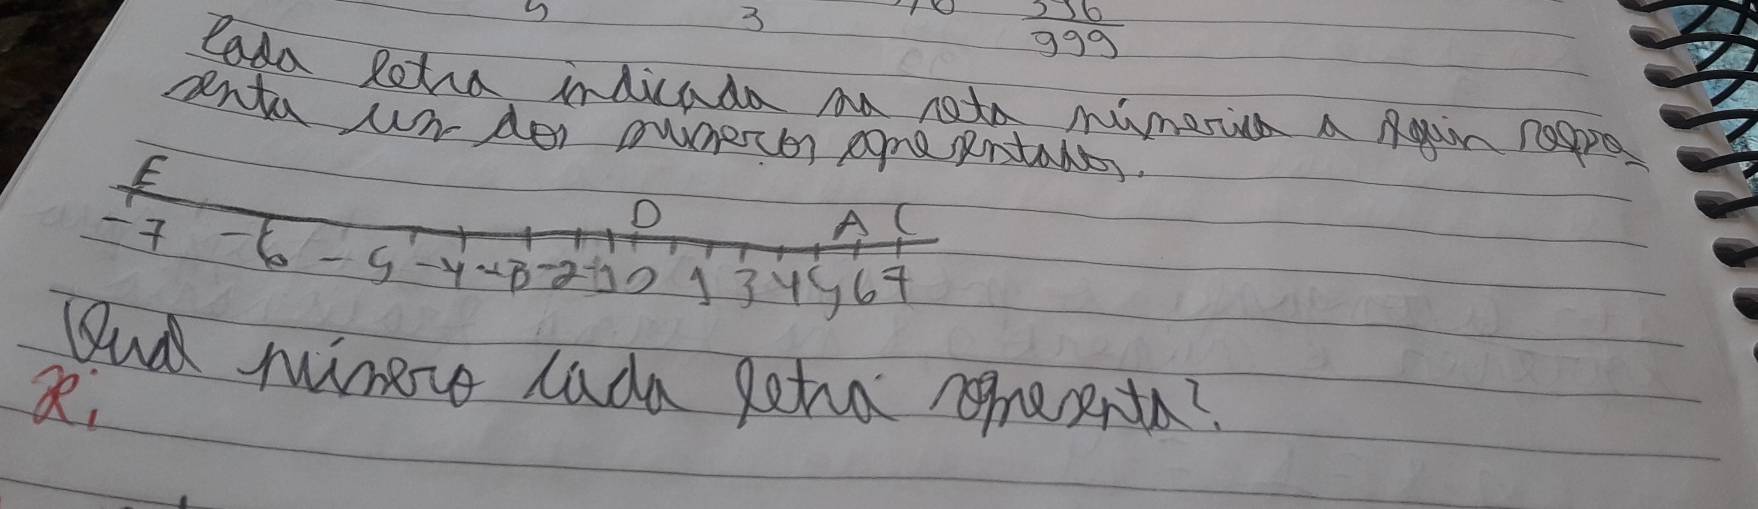 5 3 10 336
999
Cada letra indicada na reta númerica a seguir repre-
senta um dos numeros apresentados.
E D A C
-7 -6 -5 -4 -3 -2 -1 0 1 3 4 5 6 7
Qual número cada letra representa?
R.